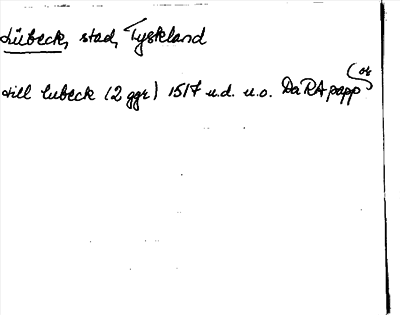 Lübeck, stad, Tyskland
till lubeck (2 ggr) 1517 u.d. u.o. DaRA papp